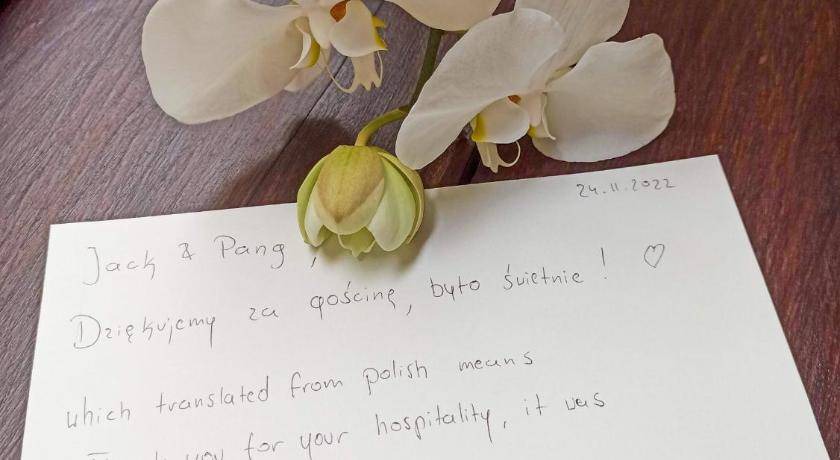 24.11.2022
Jack & Pang,
Dziękujemy za gościnę, było świetnie! ♡
which translated from polish means
Thank you for your hospitality, it was